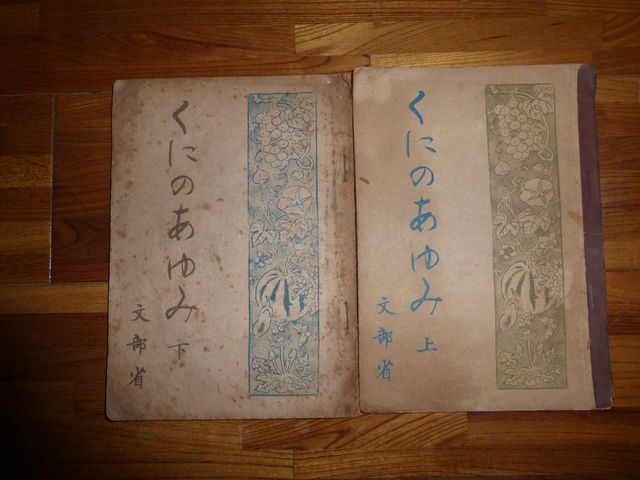 くにのあゆみ 上
文部省
くにのあゆみ 下
文部省